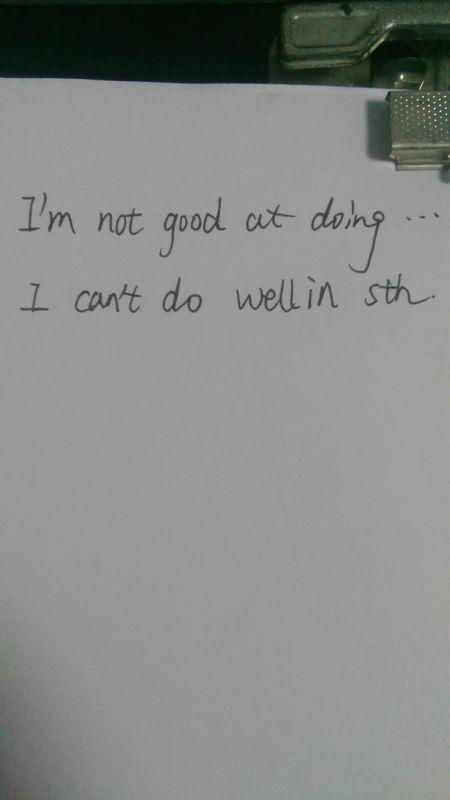 I'm not good at doing ...
I can't do well in sth.